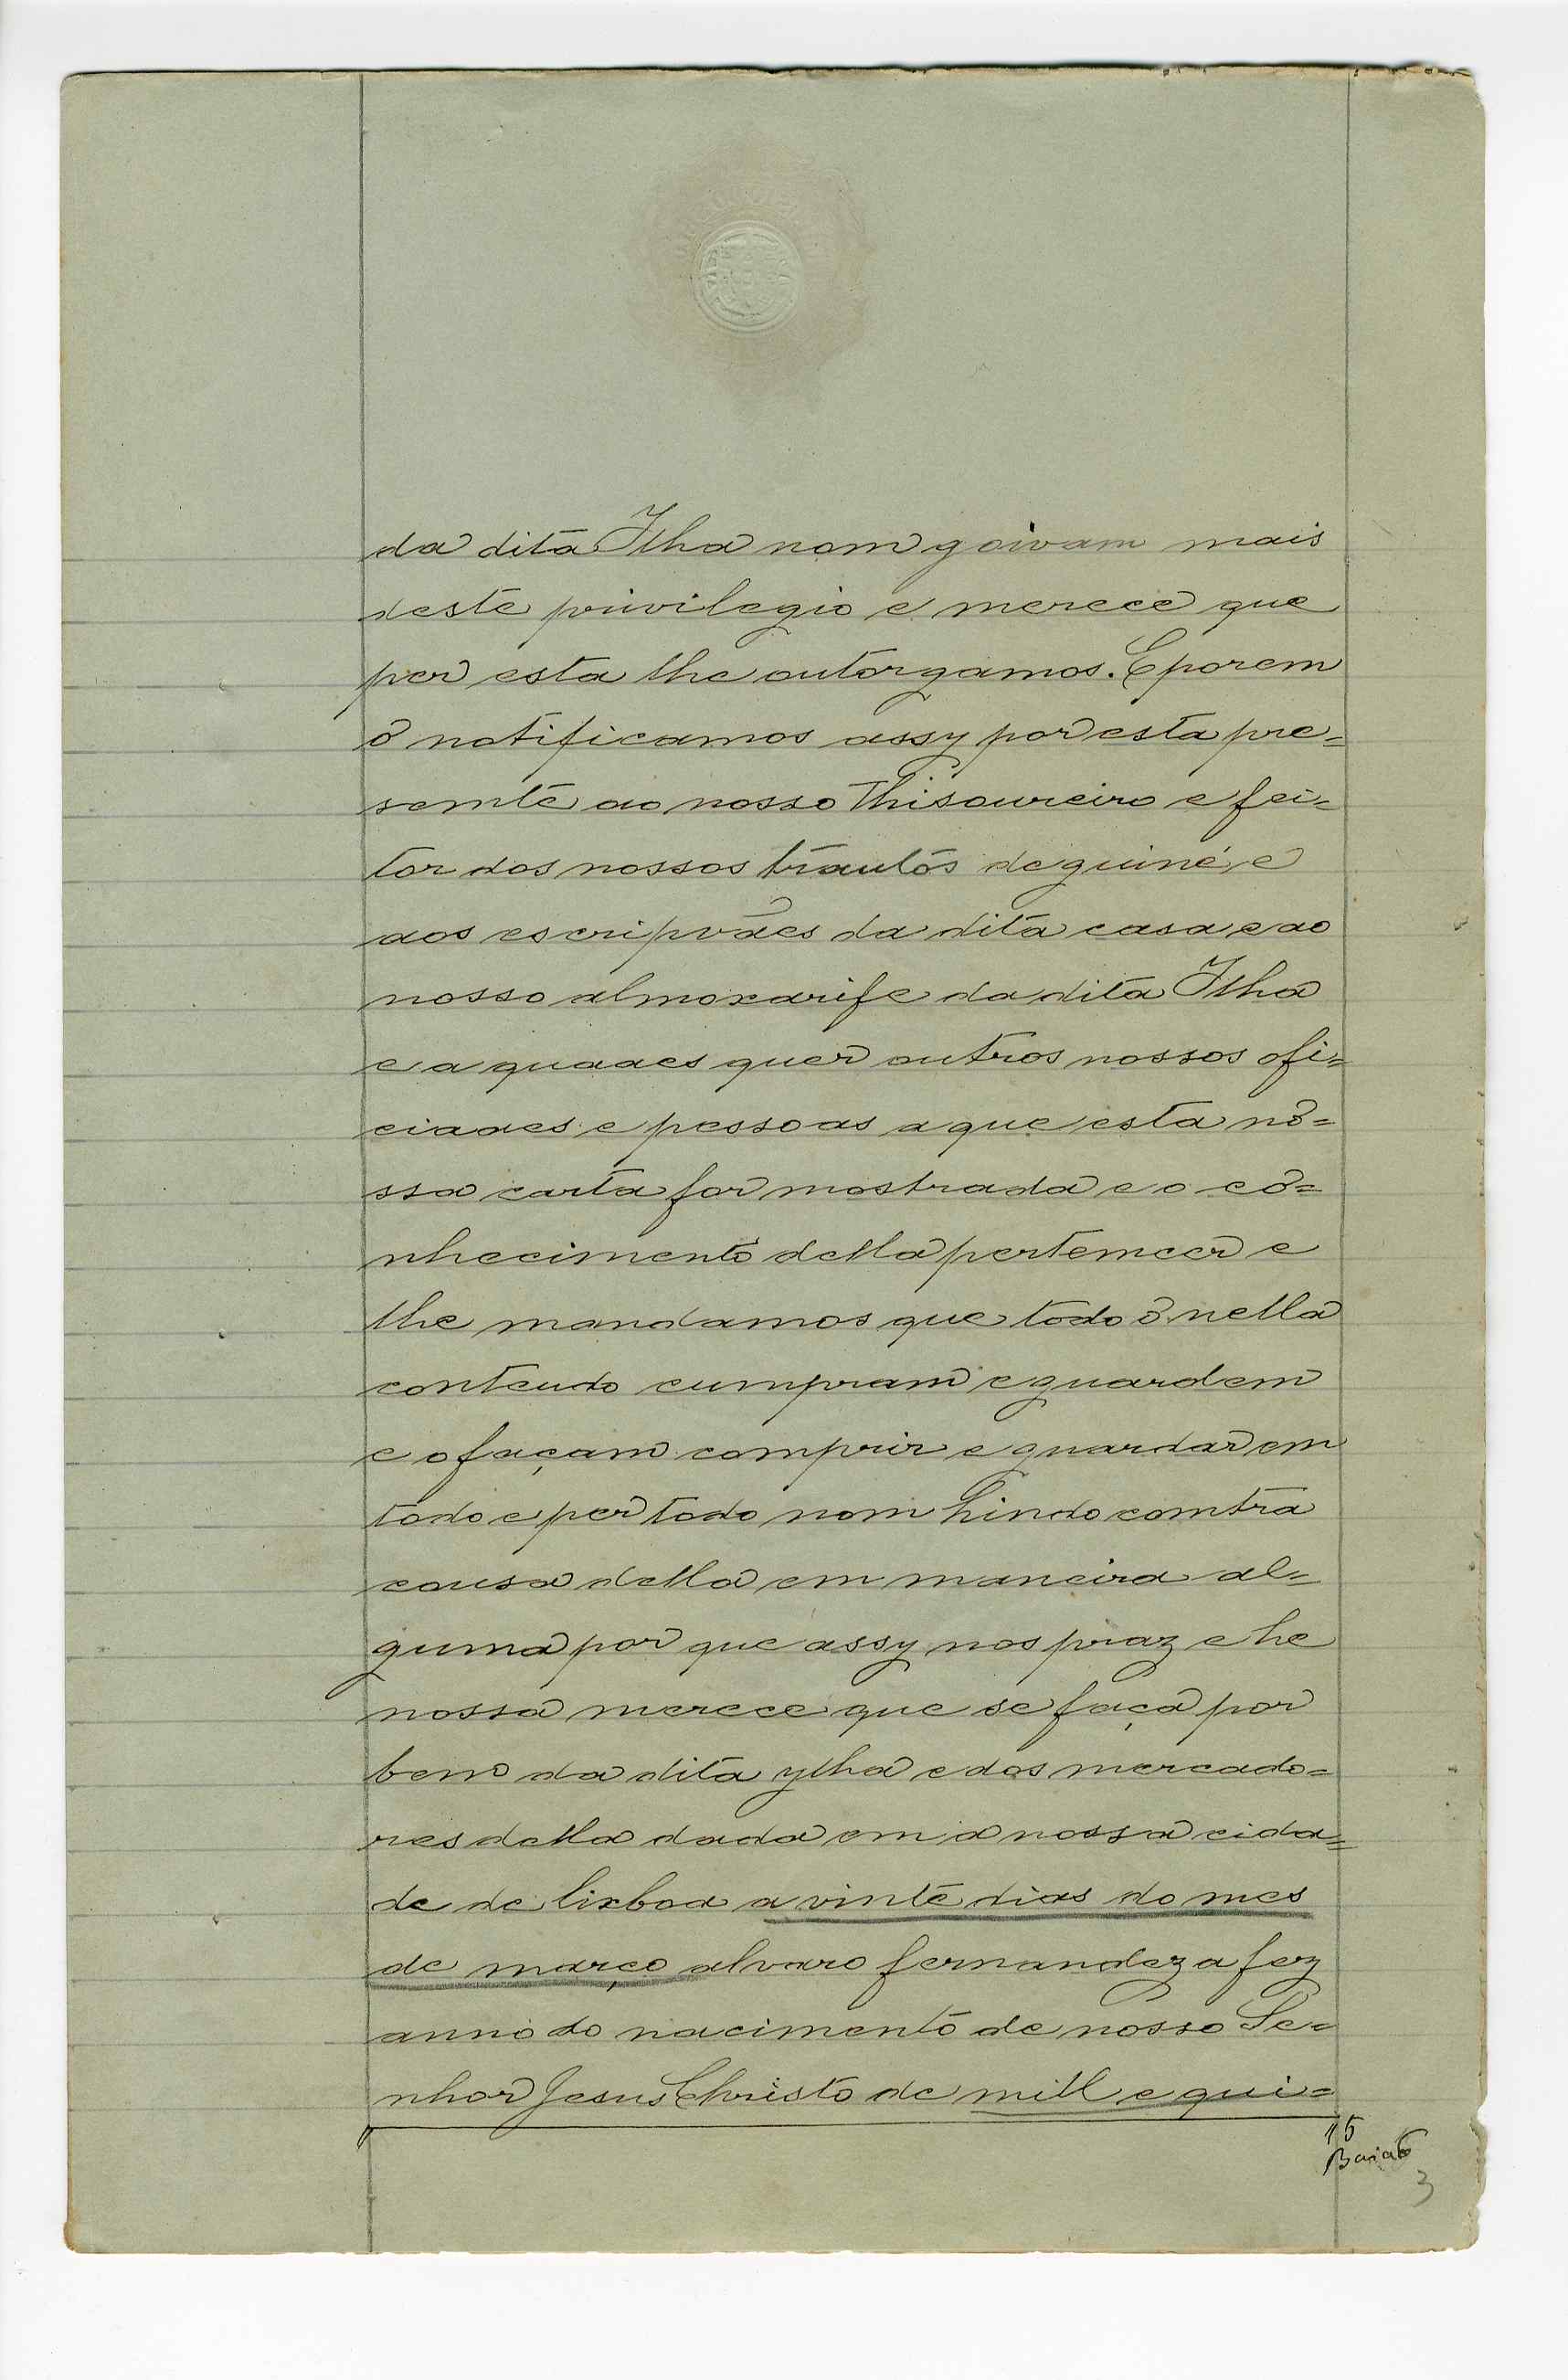 da dita Ilha nom goivam mais
deste privilegio e merece que
per esta lhe outorgamos. E porem
o notificamos assy por esta pre=
semte ao nosso Thisoureiro e fei=
tor dos nossos trautos de guiné e
aos escripvães da dita casa e ao
nosso almoxarife da dita Ilha
e a quaaes quer outros nossos ofi=
ciaaes e pessoas a que esta no=
ssa carta for mostrada e o co=
nhecimento della pertemcer e
lhe mandamos que todo o nella
conteudo cumpram e guardem
e o façam comprir e guardar em
todo e per todo nom hindo comtra
cousa della em maneira al=
guma por que assy nos praz e he
nossa merece que se faça por
bem da dita ylha e dos mercado=
res della dada em a nossa cida=
de de lixboa a vinte dias do mes
de março alvaro fernandez a fez
anno do nacimento de nosso Se=
nhor Jesus Christo de mill e qui=
15
Baiaõ
3